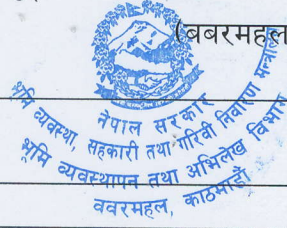 (बबरमहल
नेपाल सरकार
भूमि व्यवस्था, सहकारी तथा गरिवी निवारण मन्त्रालय
भूमि व्यवस्थापन तथा अभिलेख विभाग
ववरमहल, काठमाडौं